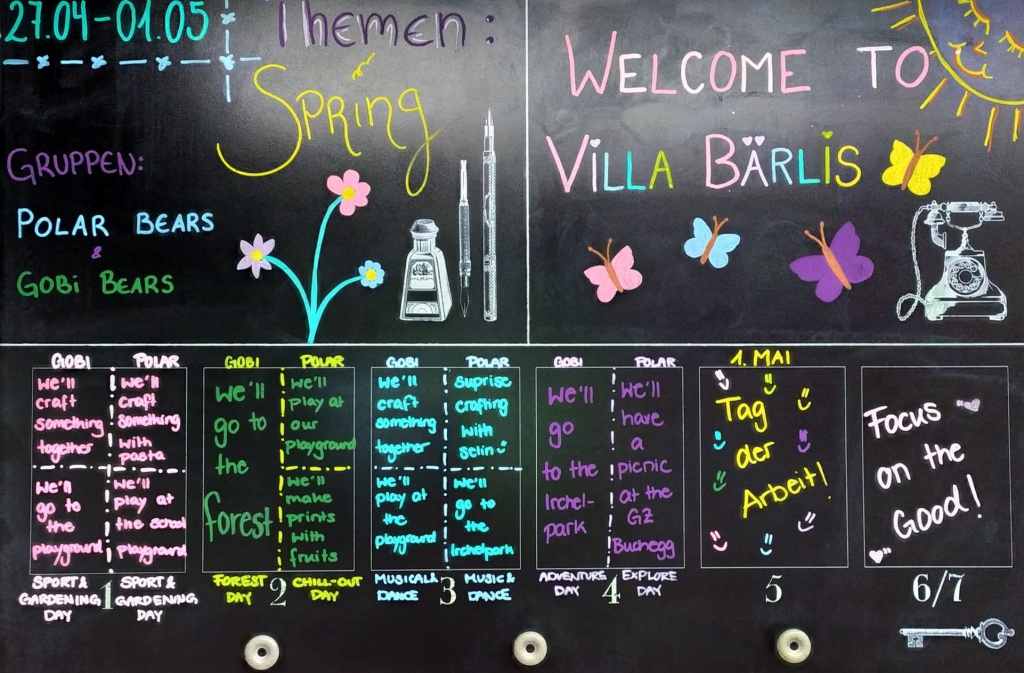 27.04-01.05
Themen:
Spring
GRUPPEN:
POLAR BEARS
&
GOBi BEARS
WELCOME TO
ViLLA BÄRLiS
GOBI POLAR
we'll
craft
something
together
we'll
craft
something
with
pasta
we'll
go to
the
playground
we'll
play at
the school
playground
SPORT &
GARDENING
DAY
1
SPORT &
GARDENING
DAY
GOBI POLAR
we'll
go to
the
forest
we'll
play at
our
playground
we'll
make
prints
with
fruits
FOREST
DAY
2
CHILL-OUT
DAY
GOBI POLAR
we'll
craft
something
together
suprise
crafting
with
selin
we'll
play at
the
playground
we'll
go to
the
Irchelpark
MUSICAL &
DANCE
3
MUSIC &
DANCE
GOBI POLAR
we'll
go
to the
Irchel-
park
we'll
have
a
picnic
at the
GZ
Buchegg
ADVENTURE
DAY
4
EXPLORE
DAY
1. MAI
Tag
der
Arbeit!
5
Focus
on the
Good!
6/7